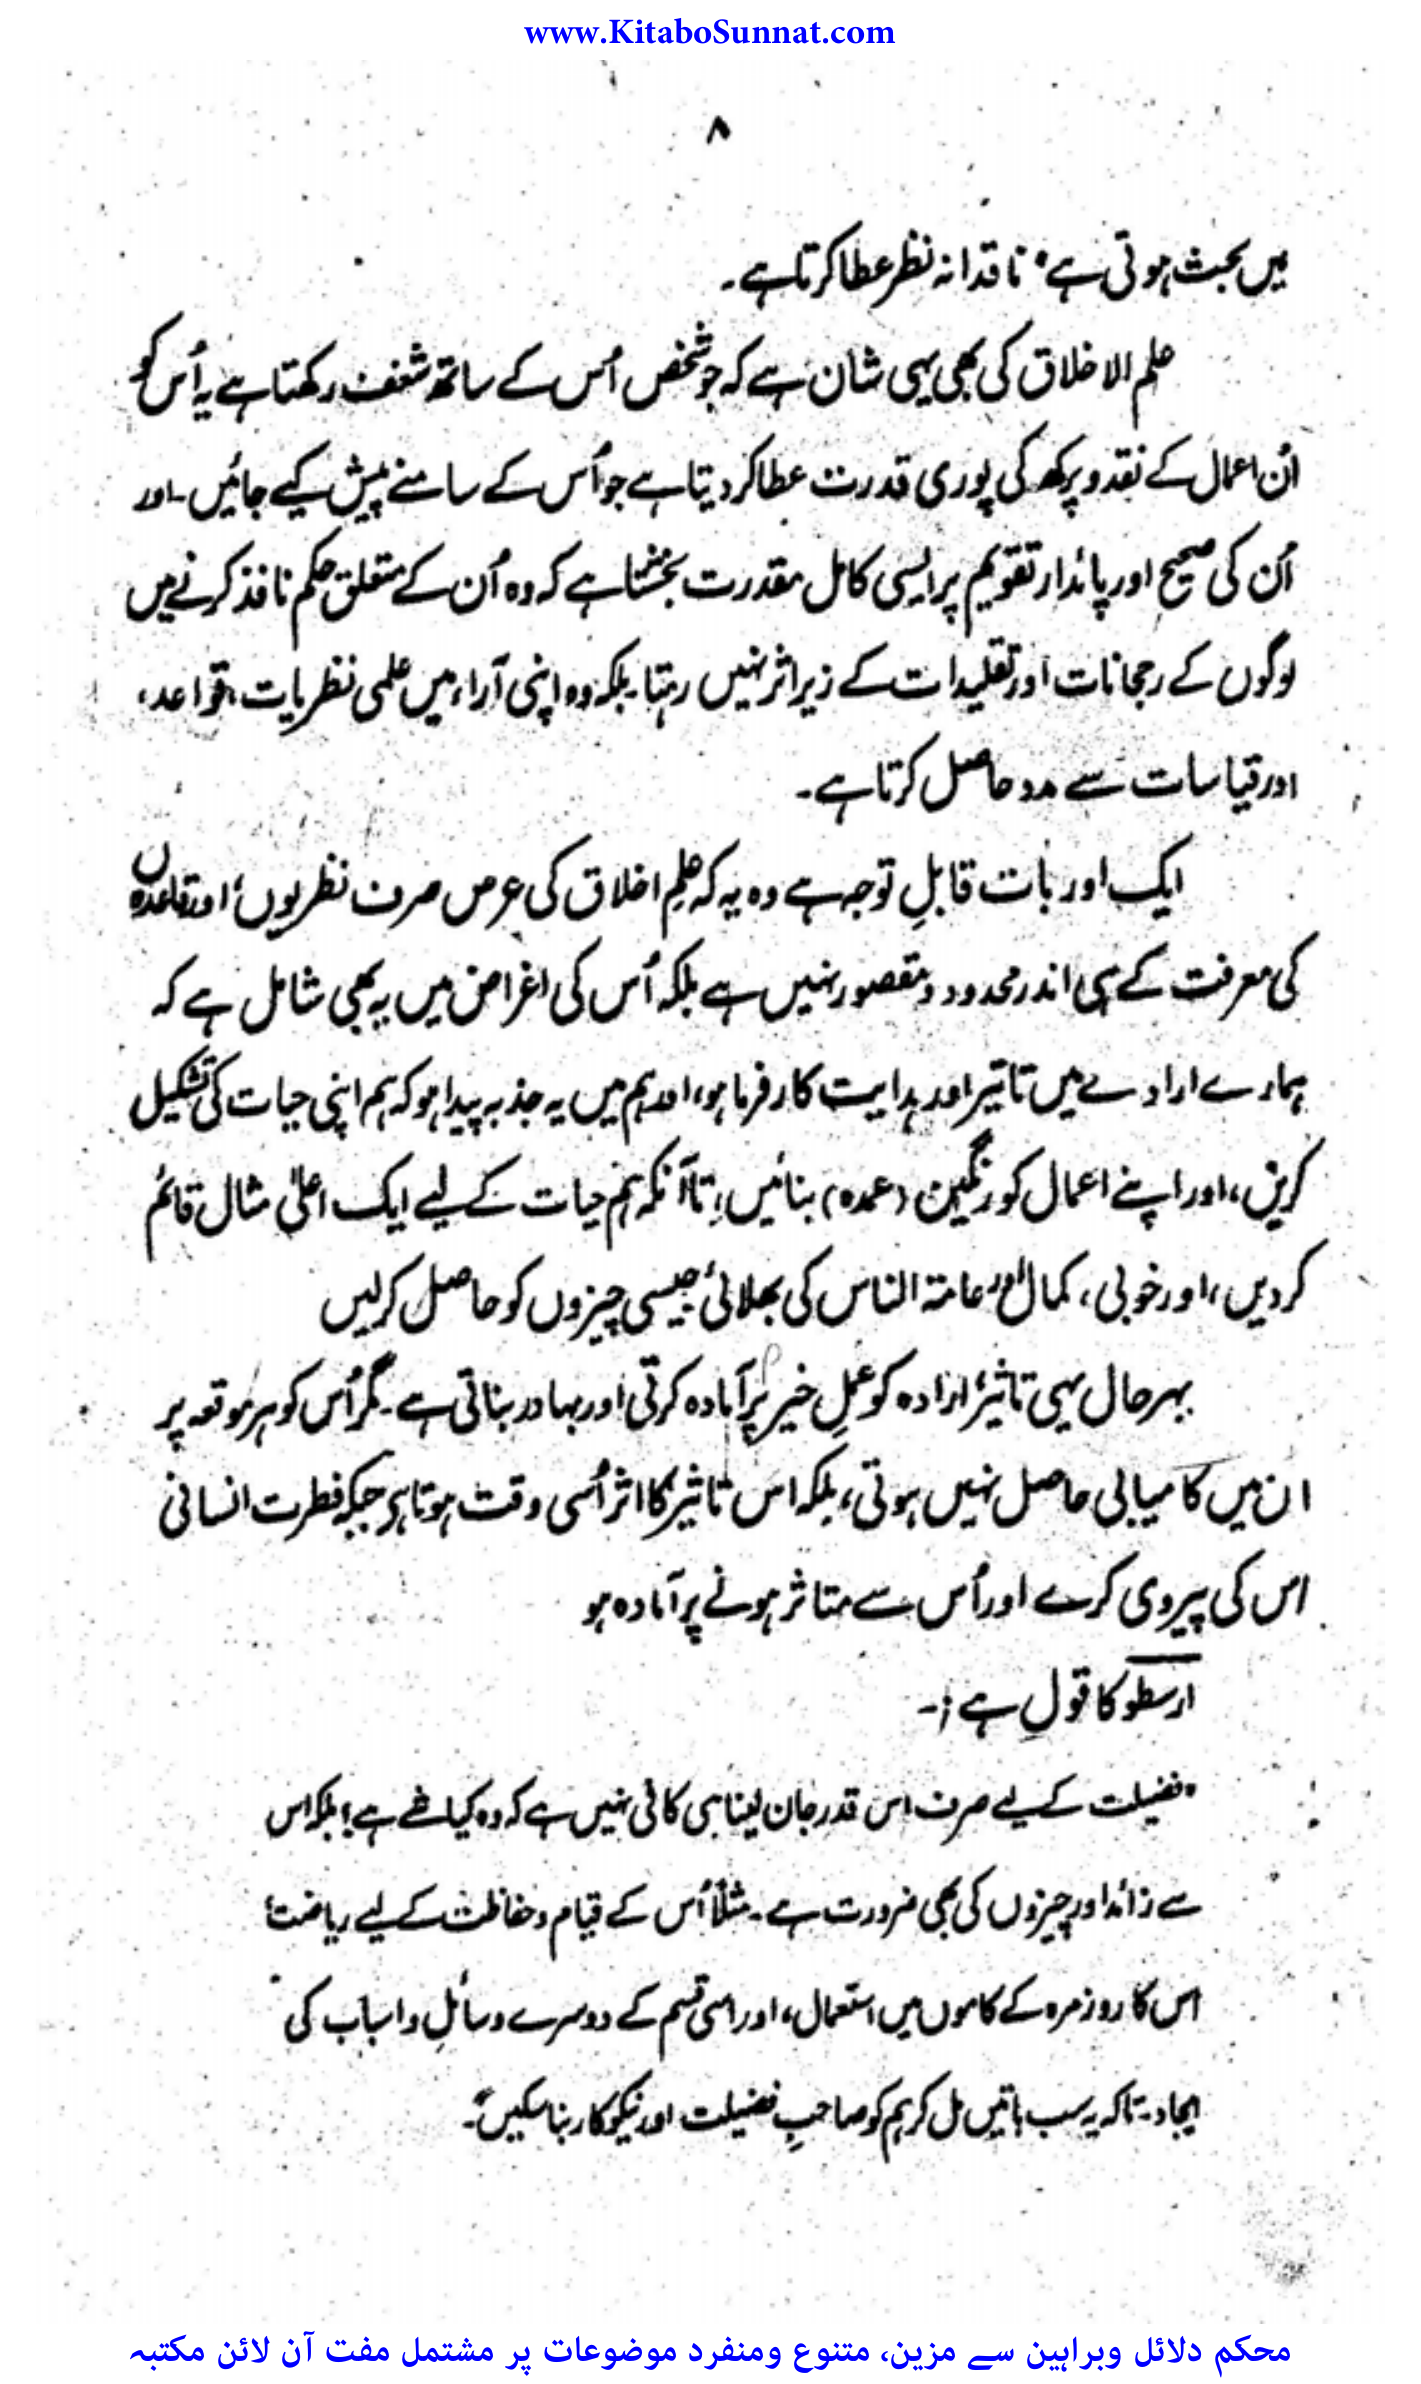 www.KitaboSunnat.com
۸
میں بحث ہوتی ہے" ناقدانہ نظر عطا کرتا ہے۔
علم الاخلاق کی بھی یہی شان ہے کہ جو شخص اُس کے ساتھ شغف رکھتا ہے یہ اُس کو
اُن اعمال کے نقد و پرکھ کی پوری قدرت عطا کر دیتا ہے جو اُس کے سامنے پیش کیے جائیں۔ اور
اُن کی صحیح اور پائدار تقویم پر ایسی کامل مقدرت بخشتا ہے کہ وہ اُن کے متعلق حکم نافذ کرنے میں
لوگوں کے رجحانات اور تقلیدات کے زیر اثر نہیں رہتا۔ بلکہ وہ اپنی آراء میں علمی نظریات، قواعد،
اور قیاسات سے مدد حاصل کرتا ہے۔
ایک اور بات قابلِ توجہ ہے وہ یہ کہ علمِ اخلاق کی غرض صرف نظریوں، اور قاعدوں
کی معرفت کے ہی اندر محدود و مقصور نہیں ہے بلکہ اُس کی اغراض میں یہ بھی شامل ہے کہ
ہمارے ارادے میں تاثیر اور ہدایت کارفرما ہو، اور ہم میں یہ جذبہ پیدا ہو کہ ہم اپنی حیات کی تشکیل
کریں، اور اپنے اعمال کو رنگین (عمدہ) بنائیں، تاآنکہ ہم حیات کے لیے ایک اعلیٰ مثال قائم
کر دیں، اور خوبی، کمال اور عامۃ الناس کی بھلائی، جیسی چیزوں کو حاصل کر لیں
بہرحال یہی تاثیر ارادہ کو عملِ خیر پر آمادہ کرتی اور بہادر بناتی ہے۔ مگر اُس کو ہر موقعہ پر
ان میں کامیابی حاصل نہیں ہوتی، بلکہ اس تاثیر کا اثر اُسی وقت ہوتا ہر جبکہ فطرت انسانی
اس کی پیروی کرے اور اُس سے متاثر ہونے پر آمادہ ہو
ارسطو کا قول ہے :۔
"فضیلت کے لیے صرف اس قدر جان لینا ہی کافی نہیں ہے کہ وہ کیا شے ہے؛ بلکہ اس
سے زائد اور چیزوں کی بھی ضرورت ہے۔ مثلاً اُس کے قیام و حفاظت کے لیے ریاضت،
اس کا روزمرہ کے کاموں میں استعمال، اور اسی قسم کے دوسرے وسائل و اسباب کی
ایجاد۔ تاکہ یہ سب باتیں مل کر ہم کو صاحبِ فضیلت اور نیکوکار بنا سکیں"۔
محکم دلائل وبراہین سے مزین، متنوع ومنفرد موضوعات پر مشتمل مفت آن لائن مکتبہ